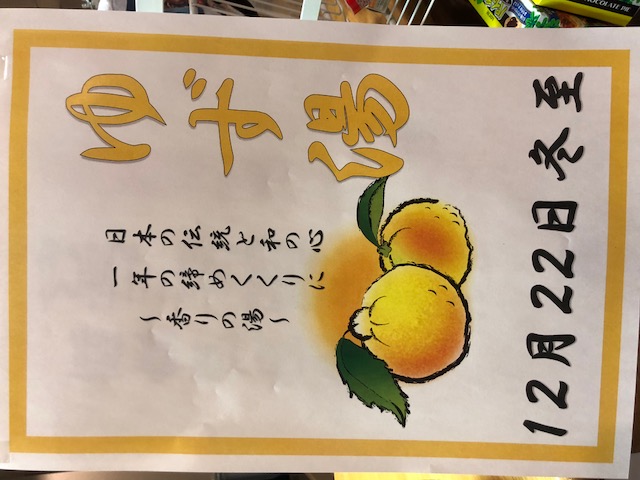 ゆず湯
日本の伝統と和の心
一年の締めくくりに
～香りの湯～
12月22日冬至
CHOCOLATE PIE